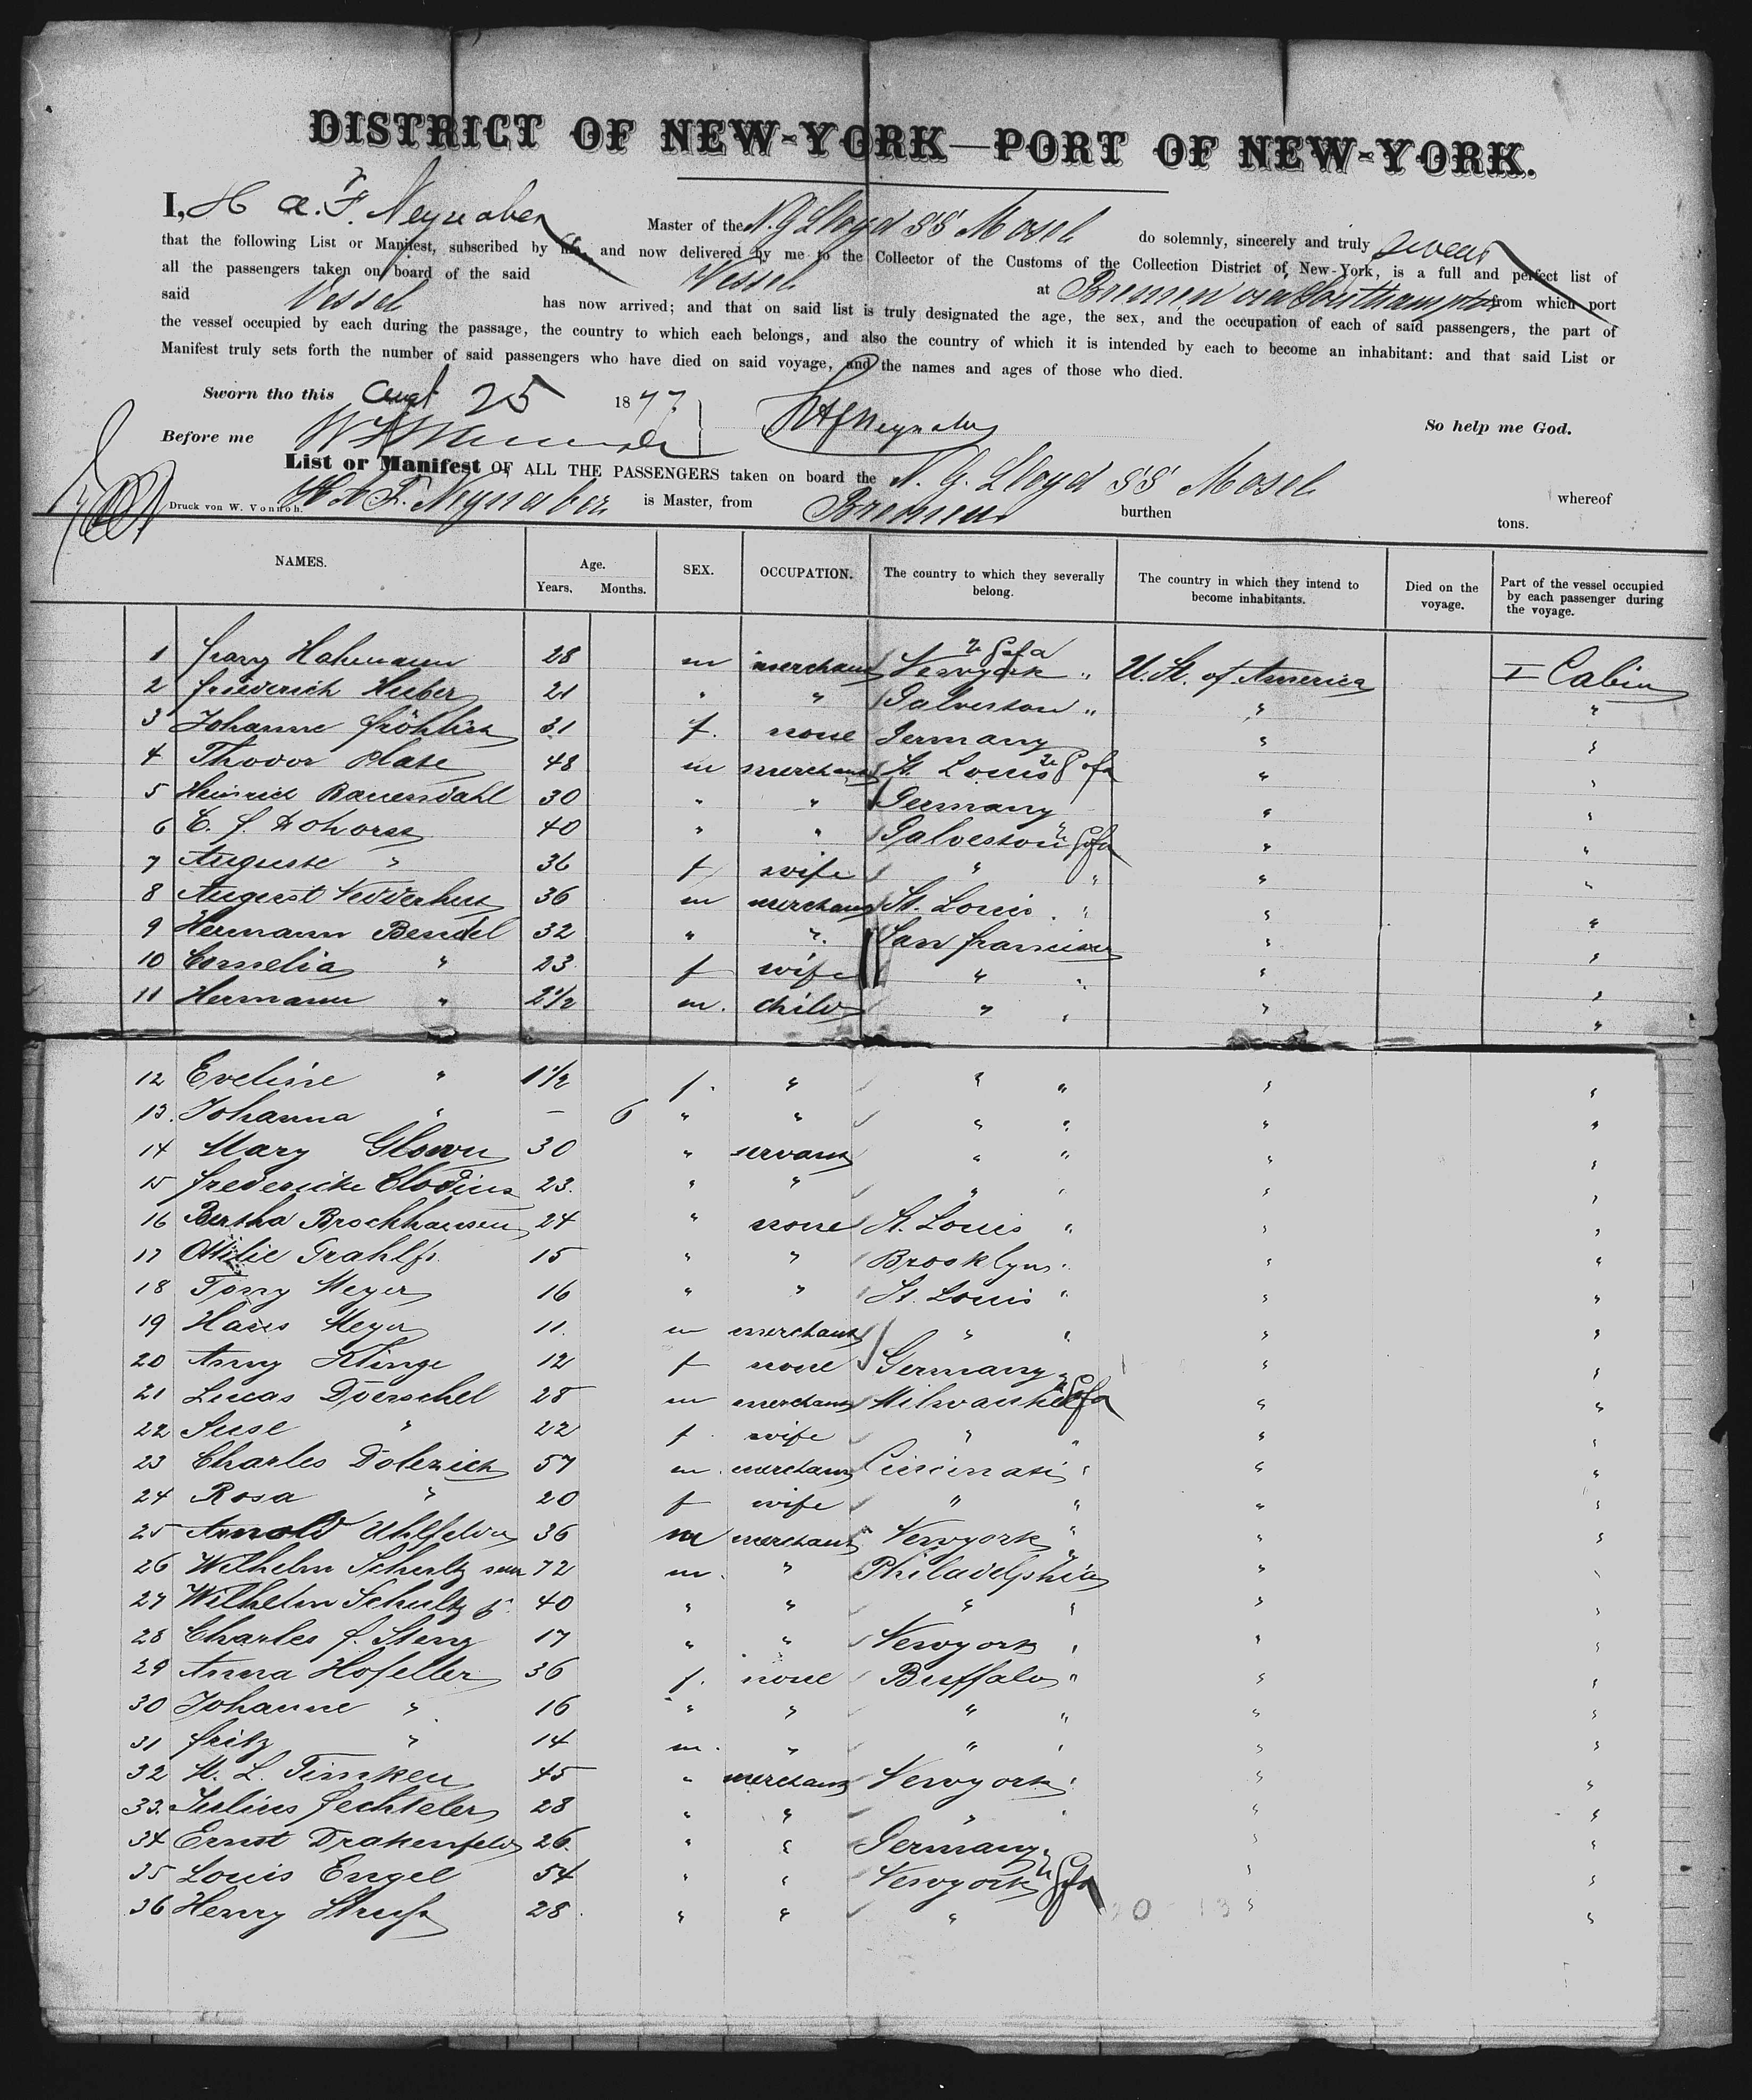 DISTRICT OF NEW-YORK—PORT OF NEW-YORK.
I, H. A. F. Neynaber Master of the N. G. Lloyd SS Mosel do solemnly, sincerely and truly swear
that the following List or Manifest, subscribed by me, and now delivered by me to the Collector of the Customs of the Collection District of New-York, is a full and perfect list of
all the passengers taken on board of the said Vessel at Bremen via Southampton from which port
said Vessel has now arrived; and that on said list is truly designated the age, the sex, and the occupation of each of said passengers, the part of
the vessel occupied by each during the passage, the country to which each belongs, and also the country of which it is intended by each to become an inhabitant: and that said List or
Manifest truly sets forth the number of said passengers who have died on said voyage, and the names and ages of those who died.
Sworn tho this Augt 25 1877
So help me God.
Before me HAFNeynaber
List or Manifest OF ALL THE PASSENGERS taken on board the N. G. Lloyd SS Mosel whereof
Druck von W. Vonnoh. H. A. F. Neynaber is Master, from Bremen burthen tons.
NAMES. Age. Years. Months. SEX. OCCUPATION. The country to which they severally belong. The country in which they intend to become inhabitants. Died on the voyage. Part of the vessel occupied by each passenger during the voyage.
1 Franz Hahmann 28 m merchant Newyork " U. St. of America I Cabin
2 Friederich Huber 21 " " Galveston " " "
3 Johanne Fröhlich 31 f. none Germany " "
4 Plate 48 m merchant St. Louis " "
5 Heinrich Bauendahl 30 " " Germany " "
6 C. F. Dohorss 40 " " Galveston " "
7 Auguste " 36 f wife " " " "
8 August 36 m merchant St. Louis " " "
9 Hermann Bendel 32 " " San Francisco " "
10 Cornelia " 23 f wife " " " "
11 Hermann " 2½ m. child " " " "
12 Eveline " 1½ f. " " " " "
13. Johanna " — 6 " " " " " "
14 Mary Glown 30 " servant " " " "
15 Fredericke Clodius 23. " " " " " "
16 Bertha Brockhausen 24 " none St. Louis " " "
17 Ottilie Grahlfs 15 " " Brooklyn " " "
18 Tony Meyer 16 " " St. Louis " " "
19 Hans Meyer 11. m merchant " " " "
20 Anny Klinge 12 f none Germany " "
21 Lucas Doerschel 28 m merchant Milwaukee " "
22 Suse " 22 f wife " " " "
23 Charles Dolezich 57 m. merchant Cincinati " " "
24 Rosa " 20 f wife " " " "
25 Arnold Uhlfelder 36 m merchant Newyork " " "
26 Wilhelm Schultz sen 72 m. " Philadelphia " "
27 Wilhelm Schultz jr. 40 " " " " " "
28 Charles F. Steng 17 " " Newyork " " "
29 Anna Hofeller 36 f. none Buffalo " " "
30 Johanne " 16 " " " " " "
31 Fritz " 14 m. " " " " "
32 H. L. Timken 45 " merchant Newyork " " "
33. Julius Fechteler 28 " " " " " "
34 Ernst Drakenfeld 26. " " Germany " "
35 Louis Engel 54 " " Newyork " "
36 Henry Struss 28 " " " " "